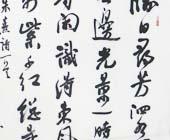 勝日尋芳泗
邊光景一時
閒識得東風
紫千紅總
朱熹詩一首